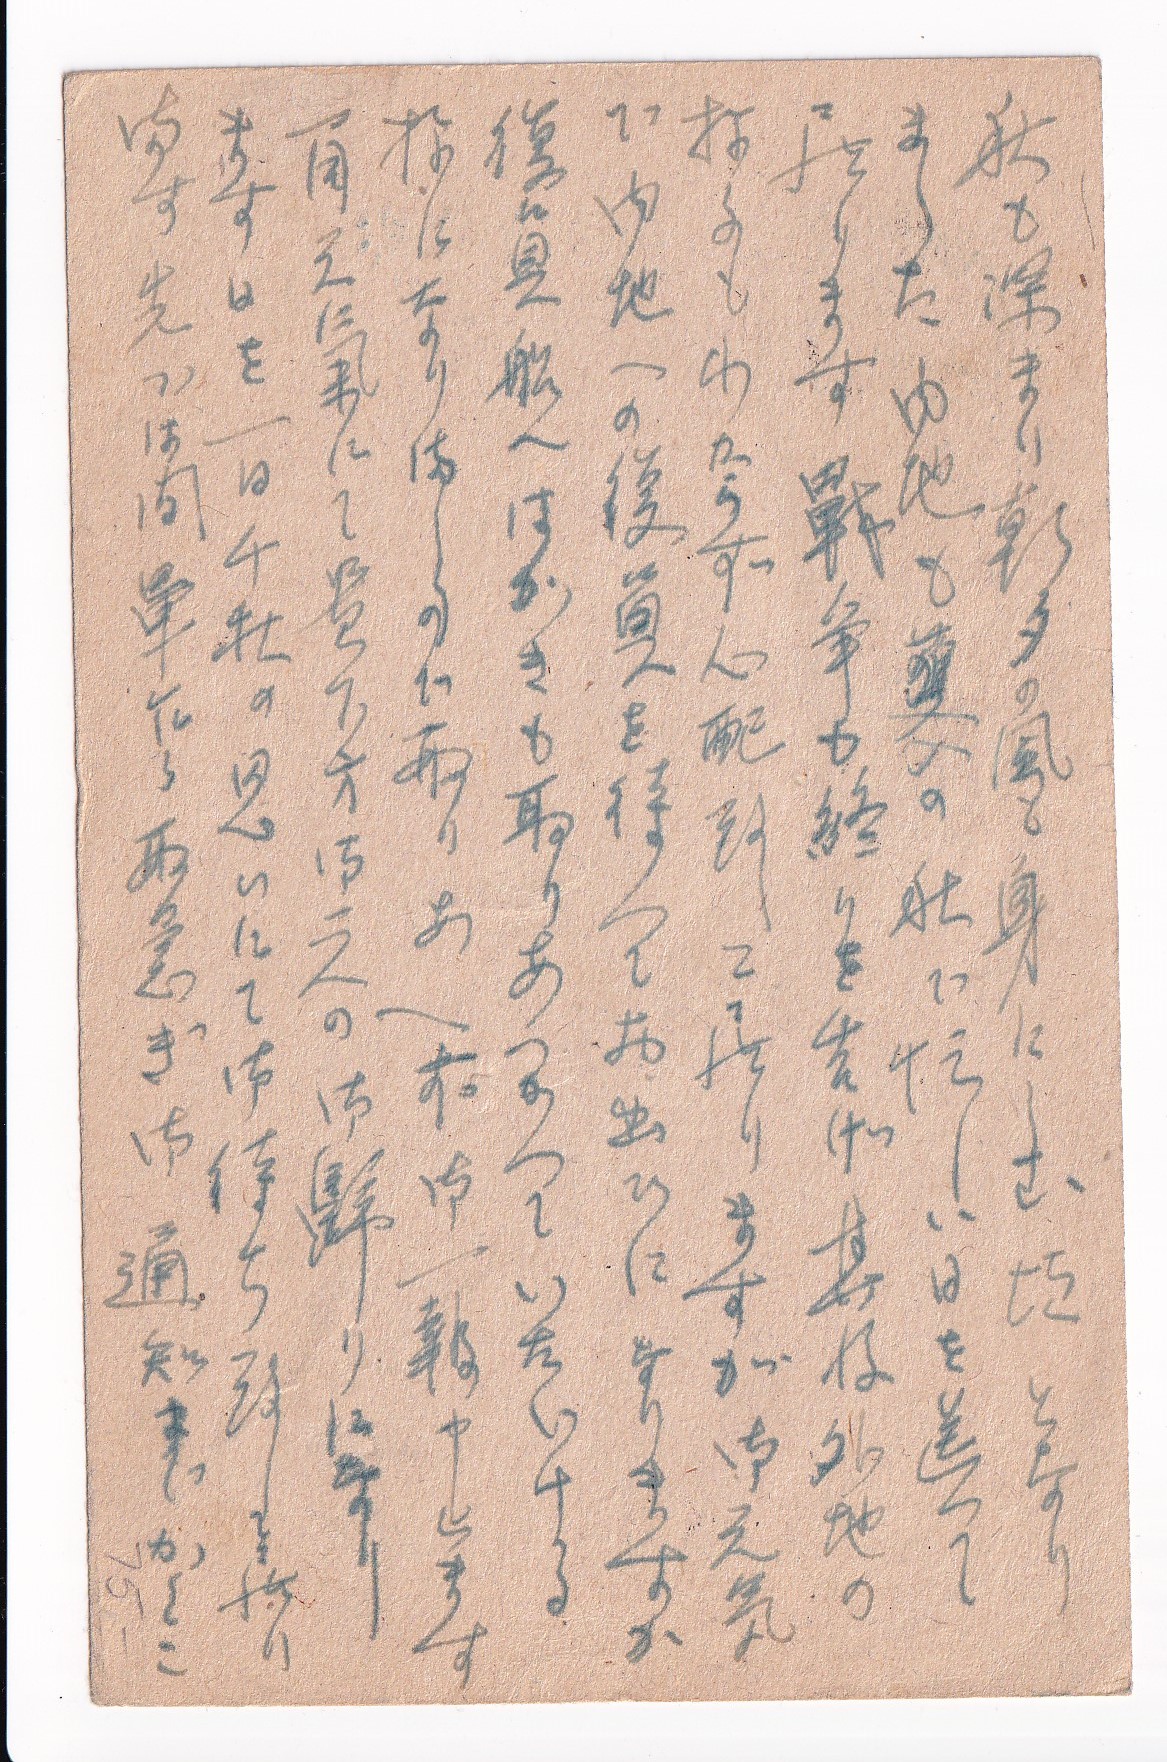 秋も深まり朝夕の風も身にしむ頃となり
ました内地も の秋で忙しい日を送って
居ります戦争も終りを告げ其後外地の
様子もわからず心配致して居りますが御元気
で内地への復員を待つてお出ひになりますか
復員船へはがきも取りあつかつていたゞける
様になりましたので取りあへず御一報申上ます
一同元気にて貴方方御二人の御歸りになり
ます日を一日千秋の思いにて御待ち致して居り
ます先づは簡單ながら取急ぎ御通知まで かしこ